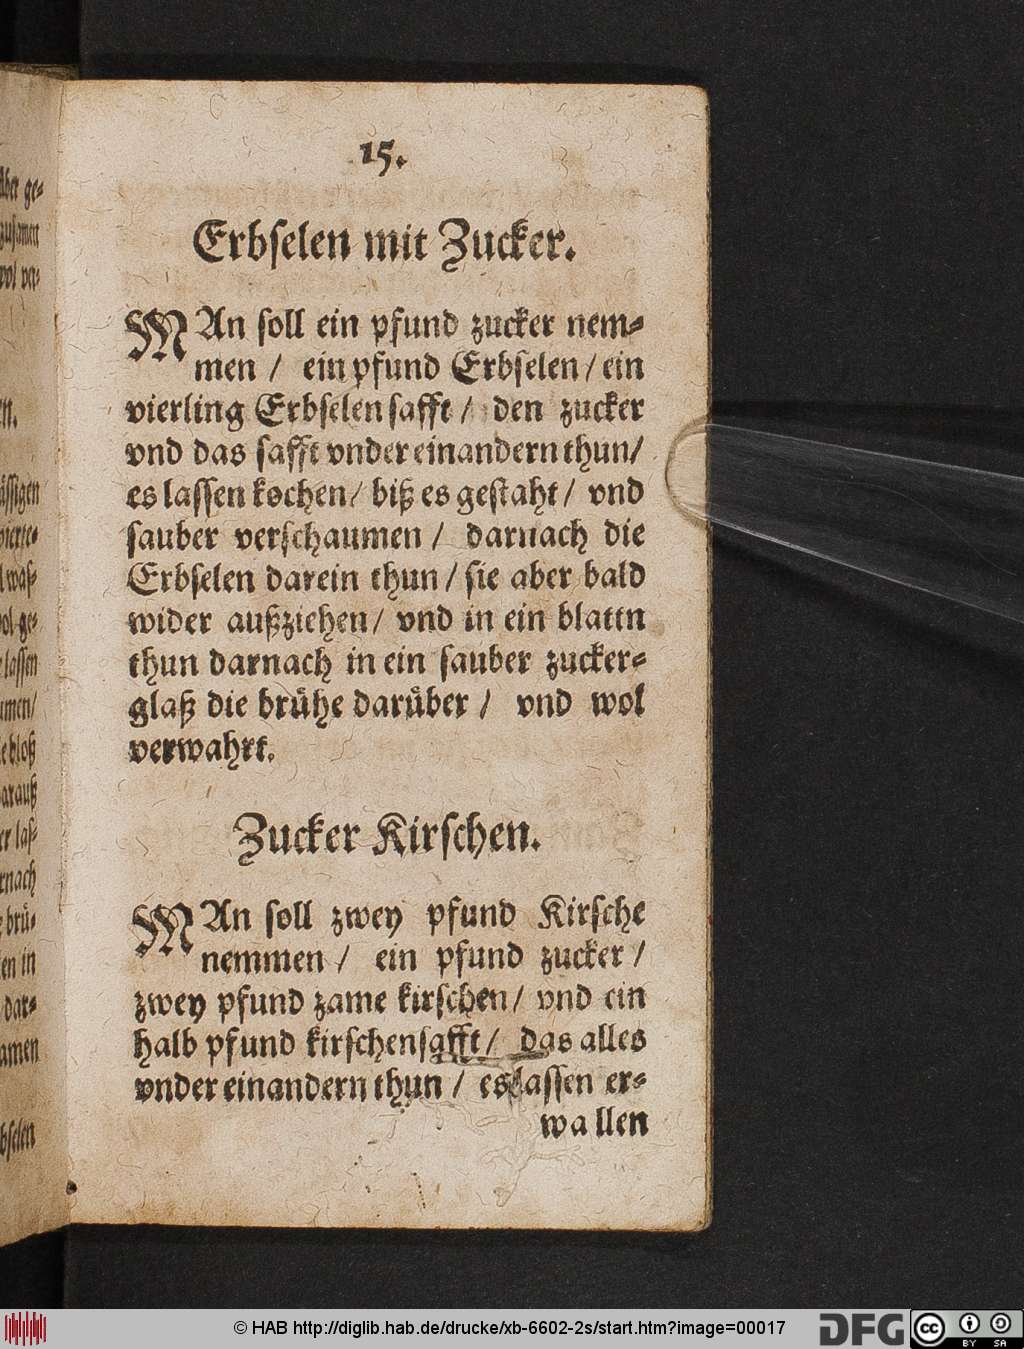 15.
Erbſelen mit Zucker.
MAn ſoll ein pfund zucker nem⸗
men / ein pfund Erbſelen / ein
vierling Erbſelen ſafft / den zucker
vnd das ſafft vnder einandern thun/
es laſſen kochen/ biß es geſtaht / vnd
ſauber verſchaumen / darnach die
Erbſelen darein thun / ſie aber bald
wider außziehen/ vnd in ein blattn
thun darnach in ein ſauber zucker⸗
glaß die bruͤhe daruͤber / vnd wol
verwahrt.
Zucker Kirſchen.
MAn ſoll zwey pfund Kirſche
nemmen / ein pfund zucker /
zwey pfund zame kirſchen/ vnd ein
halb pfund kirſchenſafft/ das alles
vnder einandern thun / es laſſen er⸗
wallen
© HAB http://diglib.hab.de/drucke/xb-6602-2s/start.htm?image=00017
DFG
cc
BY SA